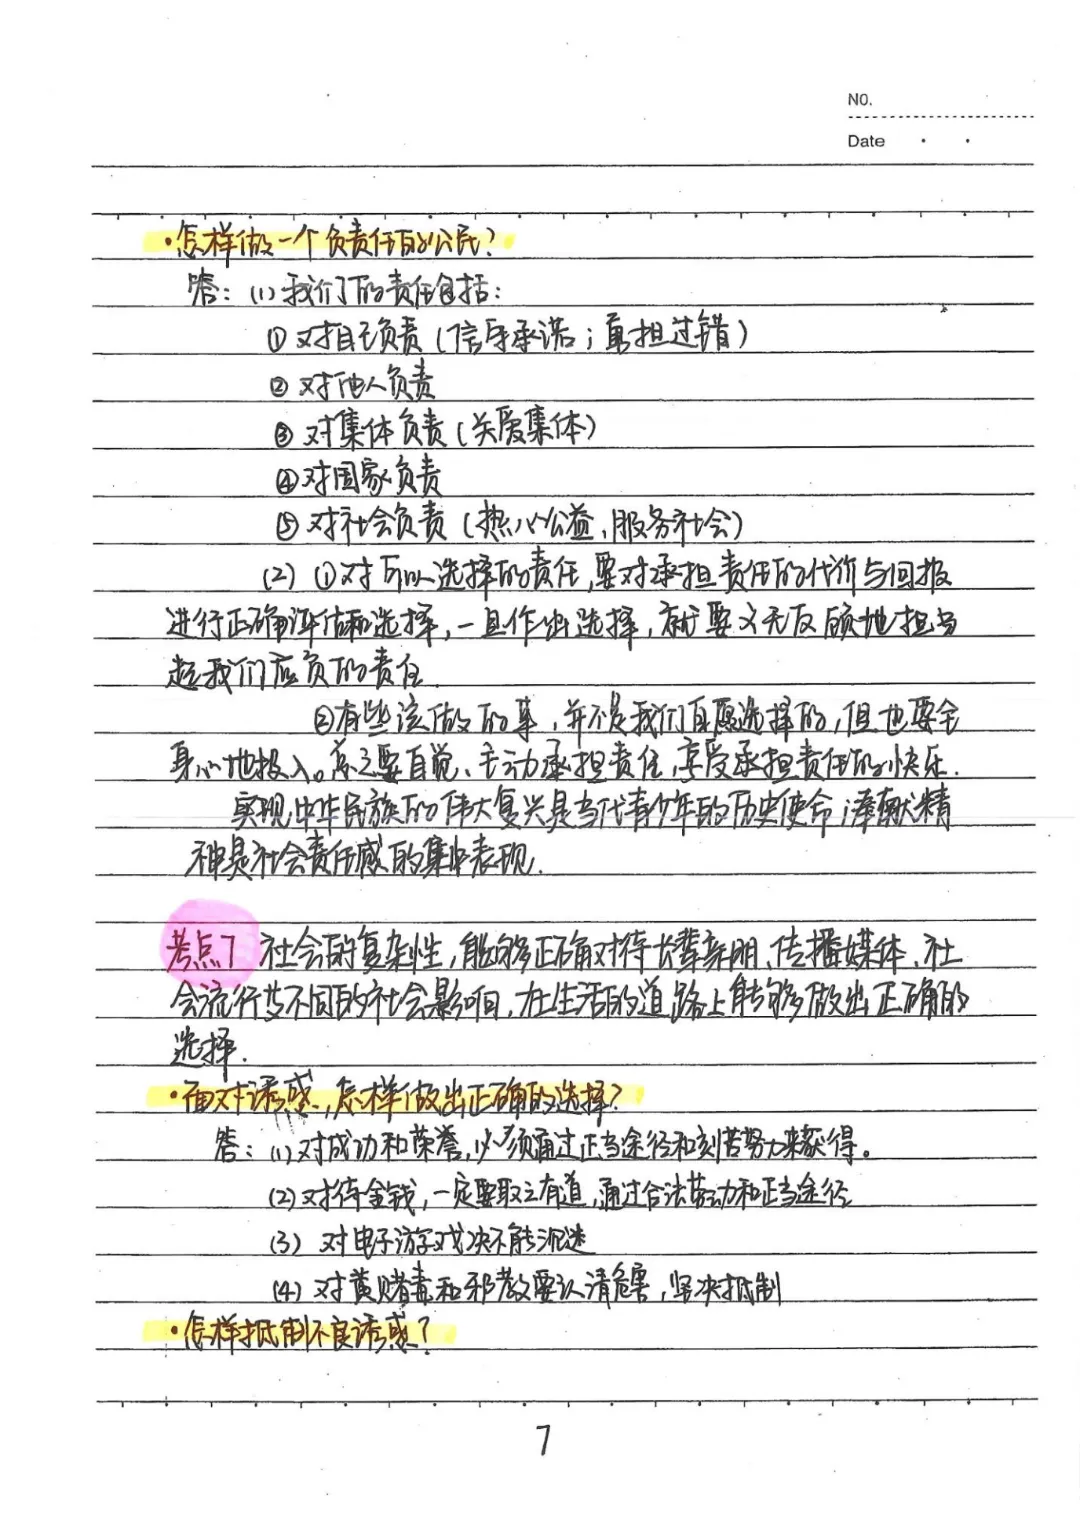 NO.
Date
·怎样做一个负责任的公民?
答:(1)我们的责任包括:
①对自己负责(信守承诺;勇担过错)
②对他人负责
③对集体负责(关爱集体)
④对国家负责
⑤对社会负责(热心公益,服务社会)
(2)①对所以选择的责任,要对承担责任的代价与回报
进行正确评估和选择,一旦作出选择,就要义无反顾地担当
起我们应负的责任
②有些该做的事,并不是我们自愿选择的,但也要全
身心地投入。总之要自觉、主动承担责任,享受承担责任的快乐.
实现中华民族的伟大复兴是当代青少年的历史使命;奉献精
神是社会责任感的集中表现.
考点7 社会的复杂性,能够正确对待长辈亲朋、传播媒体、社
会流行等不同的社会影响,在生活的道路上能够做出正确的
选择.
·面对诱惑,怎样做出正确的选择?
答:(1)对成功和荣誉,必须通过正当途径和刻苦努力来获得。
(2)对待金钱,一定要取之有道,通过合法劳动和正当途径
(3)对电子游戏决不能沉迷
(4)对黄赌毒和邪教要认清危害,坚决抵制
·怎样抵制不良诱惑?
7